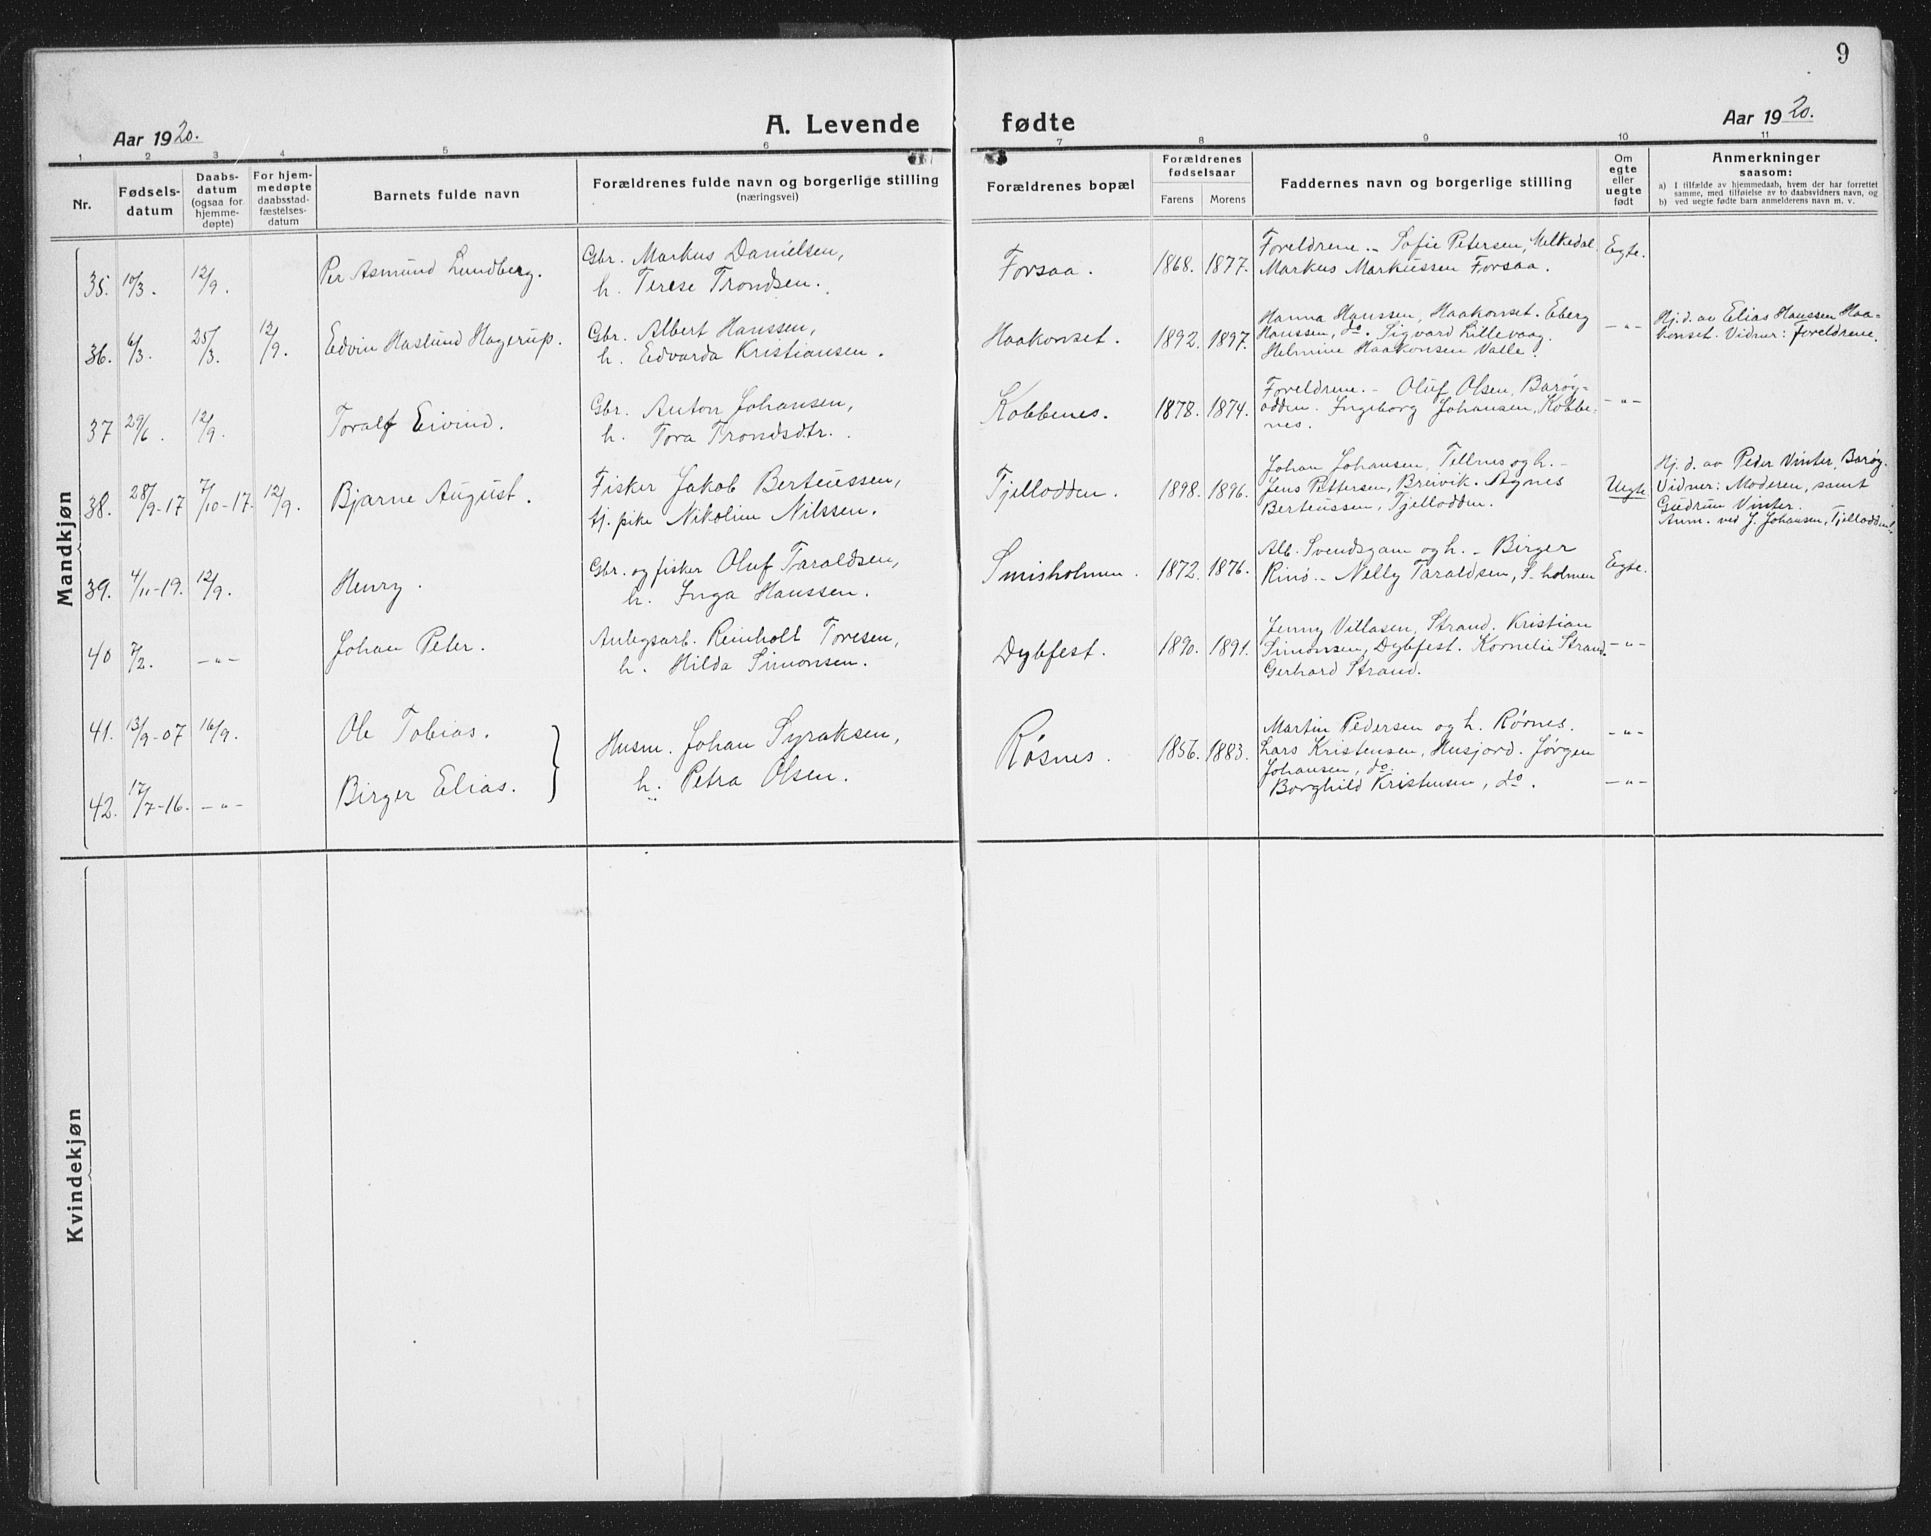 9
Aar 1920.
A. Levende
fødte
Aar 1920.
1 2 3 4 5 6 7 8 9 10 11
Nr.
Fødsels-
datum
Daabs-
datum
(ogsaa for
hjemme-
døpte)
For hjem-
medøpte
daabsstad-
fæstelses-
datum
Barnets fulde navn
Forældrenes fulde navn og borgerlige stilling
(næringsvei)
Forældrenes bopæl
Forældrenes
fødselsaar
Farens Morens
Faddernes navn og borgerlige stilling
Om
egte
eller
uegte
født
Anmerkninger
saasom:
a) I tilfælde av hjemmedaab, hvem der har forrettet
samme, med tilføielse av to daabsvidners navn, og
b) ved uegte fødte barn anmelderens navn m. v.
Mandkjøn
35. 10/3. 12/9. Per Asmund Lundberg.
Gbr. Markus Danielsen,
h. Terese Trondsen.
Forsaa. 1868. 1877.
Foreldrene. – Sofie Petersen, Melkedal.
Markus Markussen Forsaa.
Egte.
36. 6/3. 25/3. 12/9. Edvin Haslund Hagerup.
Gbr. Albert Hanssen,
h. Edvarda Kristiansen.
Haakonset. 1892. 1897.
Hanna Hanssen, Haakonset. Eberg
Hanssen, do. Sigvard Lillevaag.
Helmine Haakonsen Valle.
–"–
Hj. d. av Elias Hanssen Haa-
konset. Vidner: foreldrene.
37 29/6. 12/9. Toralf Eivind.
Gbr. Anton Johansen,
h. Tora Trondsdtr.
Kobbenes. 1878. 1874.
Foreldrene. – Oluf Olsen, Barøy-
odden. Ingeborg Johansen, Kobbe-
nes.
–"–
38. 28/9-17 7/10-17. 12/9. Bjarne August.
Fisker Jakob Berteussen,
tj. pike Nikoline Nilssen.
Tjellodden. 1898. 1896.
Johan Johansen, Tellnes og h. –
Jens Pettersen, Breivik. Agnes
Berteussen, Tjellodden.
Uegte
Hj. d. av Peder Vinter, Barøy.
Vidner: Moderen, samt
Gudrun Vinter.
Anm. ved J. Johansen, Tjellodden.
39. 4/11-19. 12/9. Henry.
Gbr. og fisker Oluf Taraldsen,
h. Inga Hanssen.
Smisholmen. 1872. 1876.
Alb. Svendsgam og h. – Birger
Rinø – Nelly Taraldsen, S-holmen
Egte.
40 7/2. –"– Johan Peter.
Anlegsarb. Reinholt Toresen,
h. Hilda Simonsen.
Dybfest. 1890. 1891.
Jenny Villasen, Strand. Kristian
Simonsen, Dybfest. Kornelie Strand.
Gerhard Strand.
–"–
41. 13/9-07 16/9. Ole Tobias.
42. 17/7-16. –"– Birger Elias.
Husm. Johan Syraksen,
h. Petra Olsen.
Røsnes. 1856. 1883.
Martin Pedersen og h. Rørnes.
Lars Kristensen, Husjord. Jørgen
Johansen, do.
Borghild Kristensen, do.
–"–
–"–
Kvindekjøn